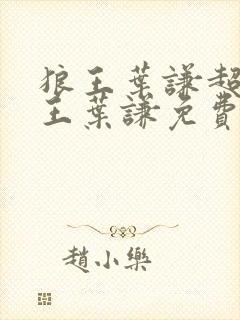 狼王葉謙超
王葉謙免費
趙小樂